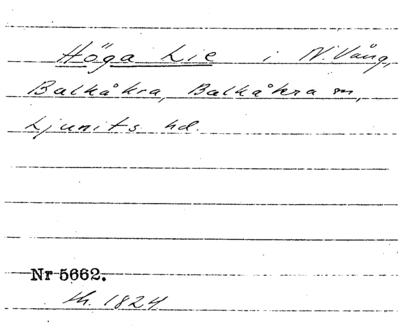 Höga Lie i N. Vång,
Balkåkra, Balkåkra sn,
Ljunits hd.
Nr 5662.
1824